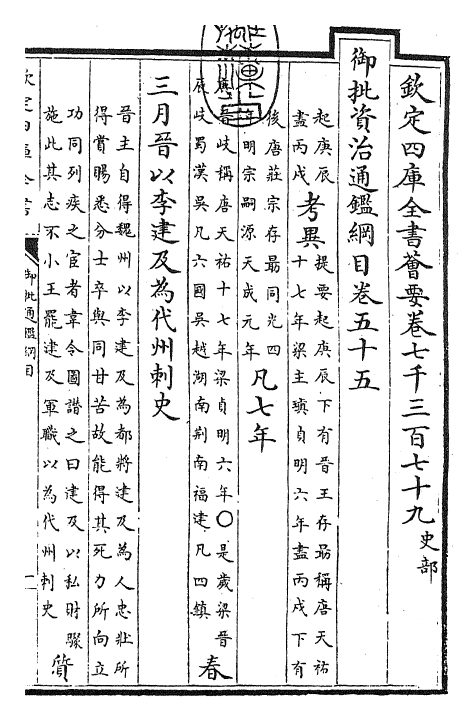 欽定四庫全書薈要卷七千三百七十九 史部
御批資治通鑑綱目卷五十五
起庚辰
盡丙戌
考異
提要起庚辰下有晉王存勗稱唐天祐
十七年梁主瑱貞明六年盡丙戌下有
後唐莊宗存勗同光四
年明宗嗣源天成元年
凡七年
晉岐稱唐天祐十七年梁貞明六年○是歲梁晉
辰岐蜀漢吳凡六國吳越湖南荆南福建凡四鎮
春
三月晉以李建及為代州刺史
晉主自得魏州以李建及為都將建及為人忠壯所
得賞賜悉分士卒與同甘苦故能得其死力所向立
功同列疾之宦者韋令圖譖之曰建及以私財驟
施此其志不小王罷建及軍職以為代州刺史
質
欽定四庫全書
御批通鑑綱目
一